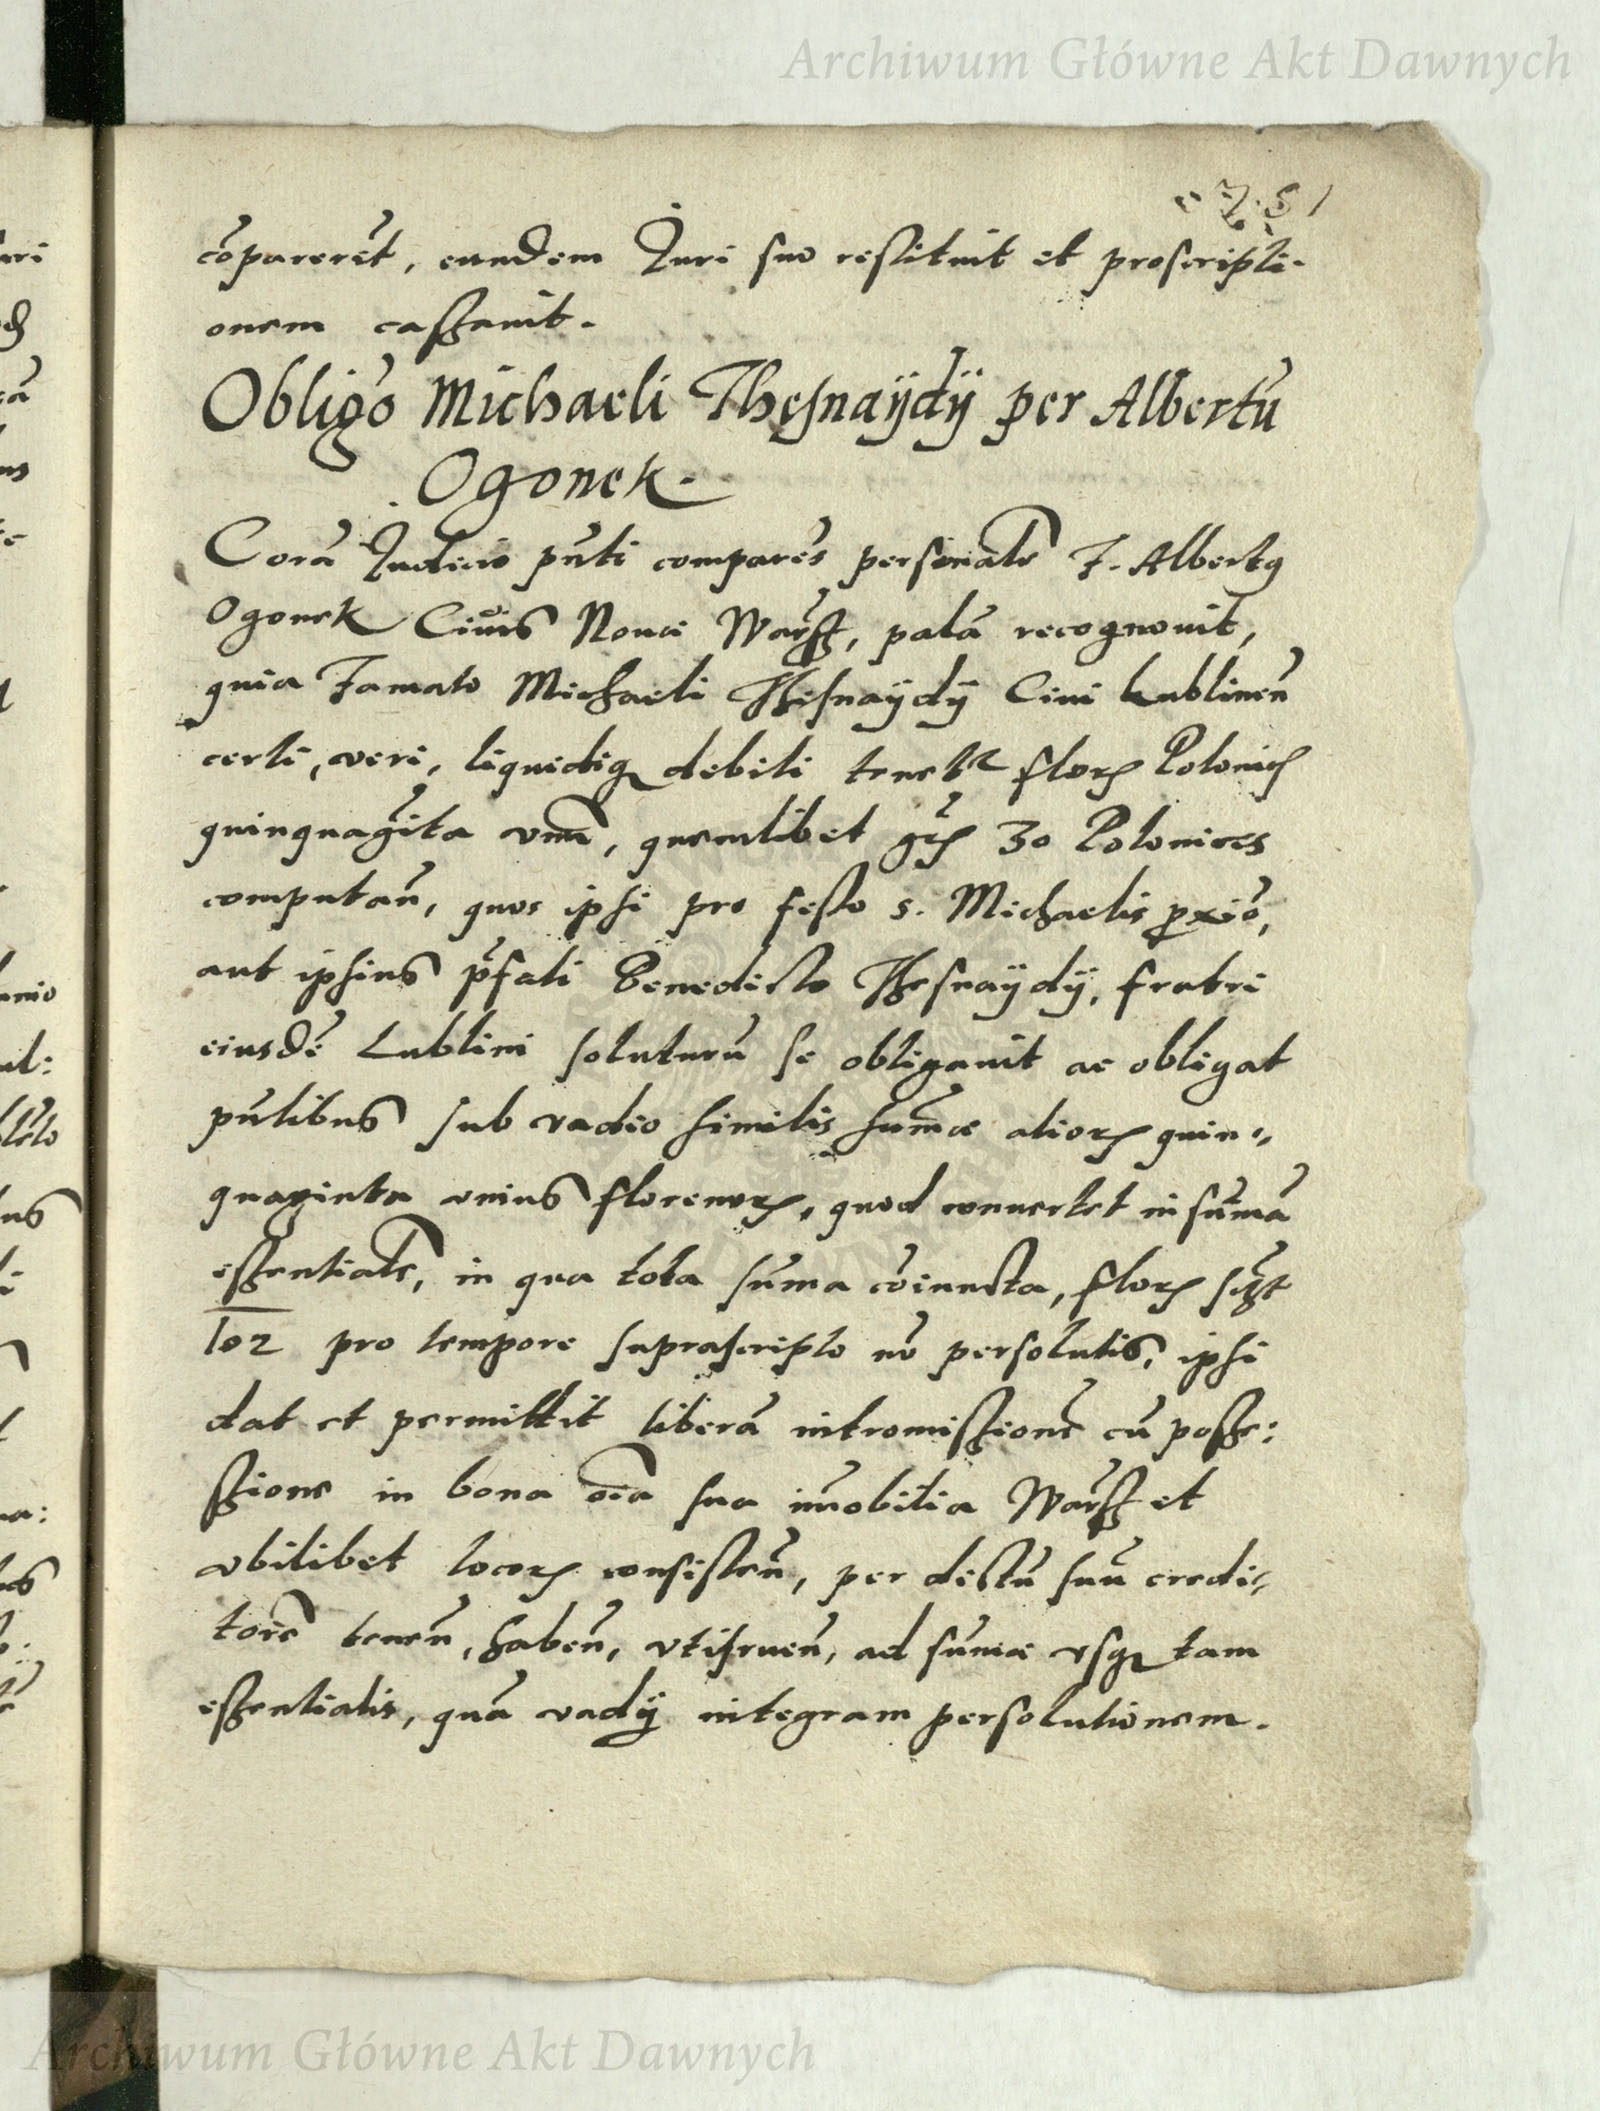 Archiwum Główne Akt Dawnych
cōparerēt, eundem Juri suo restituit et proscripti-
onem cassauit.
Obligō Michaeli Thesnaÿdÿ per Albertū
Ogonek.
Corā Judicio pn̄ti comparēs personalr̄ F. Albertq
Ogonek Ciuis Nouæ Warss, palā recognouit,
quia Famato Michaeli Thesnaÿdÿ Ciui Lublineñ
certi, veri, liquidiq debiti tenetr florꝝ Polonicꝝ
quinquagīta vnū, quemlibet grꝝ 30 Polonices
computañ, quos ipsi pro festo s. Michaelis ꝓxiō,
aut ipsius p̄fati Benedicto Thesnaÿdÿ, fratri
eiusdē Lublini soluturū se obligauit ac obligat
pn̄tibus sub vadio similis sum̄æ aliorꝝ quin-
quaginta vnius florenorꝝ, quod conuertet in sum̄ā
essentialē, in qua tota sum̄a cōiuncta, florꝝ sczt
102 pro tempore suprascripto nō persolutis, ipsi
dat et permittit liberā intromissionē cū posse:
ssione in bona oīa sua im̄obilia Warss et
vbilibet locorꝝ consisteñ, per dictū suū credi-
torē teneñ, habeñ, vtifrueñ, ad sum̄æ vsq tam
essentialis, quā vadÿ integram persolutionem.
Archiwum Główne Akt Dawnych